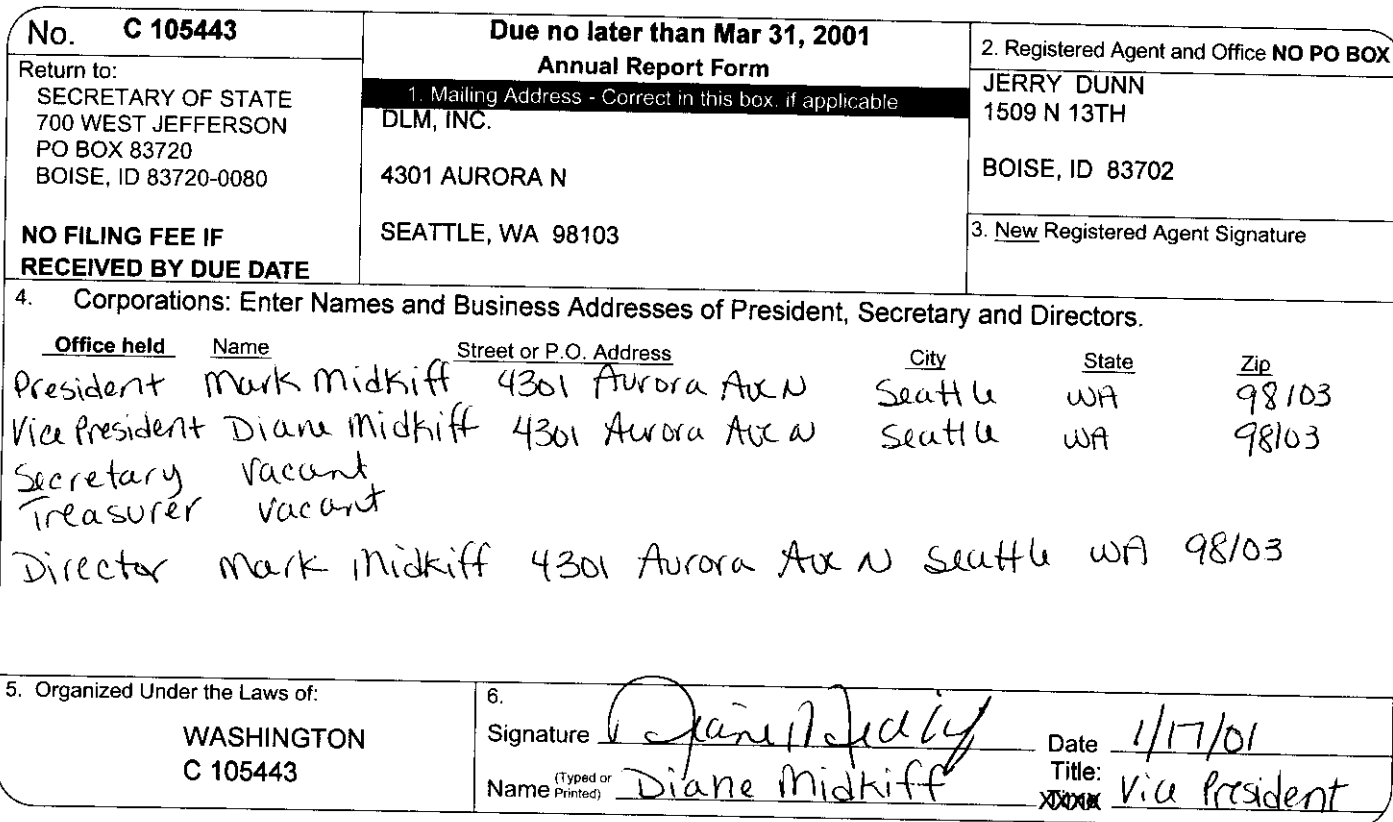 No. C 105443
Return to:
SECRETARY OF STATE
700 WEST JEFFERSON
PO BOX 83720
BOISE, ID 83720-0080
NO FILING FEE IF
RECEIVED BY DUE DATE
Due no later than Mar 31, 2001
Annual Report Form
1. Mailing Address - Correct in this box, if applicable
DLM, INC.
4301 AURORA N
SEATTLE, WA 98103
2. Registered Agent and Office NO PO BOX
JERRY DUNN
1509 N 13TH
BOISE, ID 83702
3. New Registered Agent Signature
4. Corporations: Enter Names and Business Addresses of President, Secretary and Directors.
Office held Name Street or P.O. Address City State Zip
President Mark Midkiff 4301 Aurora Ave N Seattle WA 98103
Vice President Diane Midkiff 4301 Aurora Ave N Seattle WA 98103
Secretary vacant
Treasurer vacant
Director Mark Midkiff 4301 Aurora Ave N Seattle WA 98103
5. Organized Under the Laws of:
WASHINGTON
C 105443
6.
Signature Date 1/17/01
Name (Typed or Printed) Diane Midkiff Title: Vice President